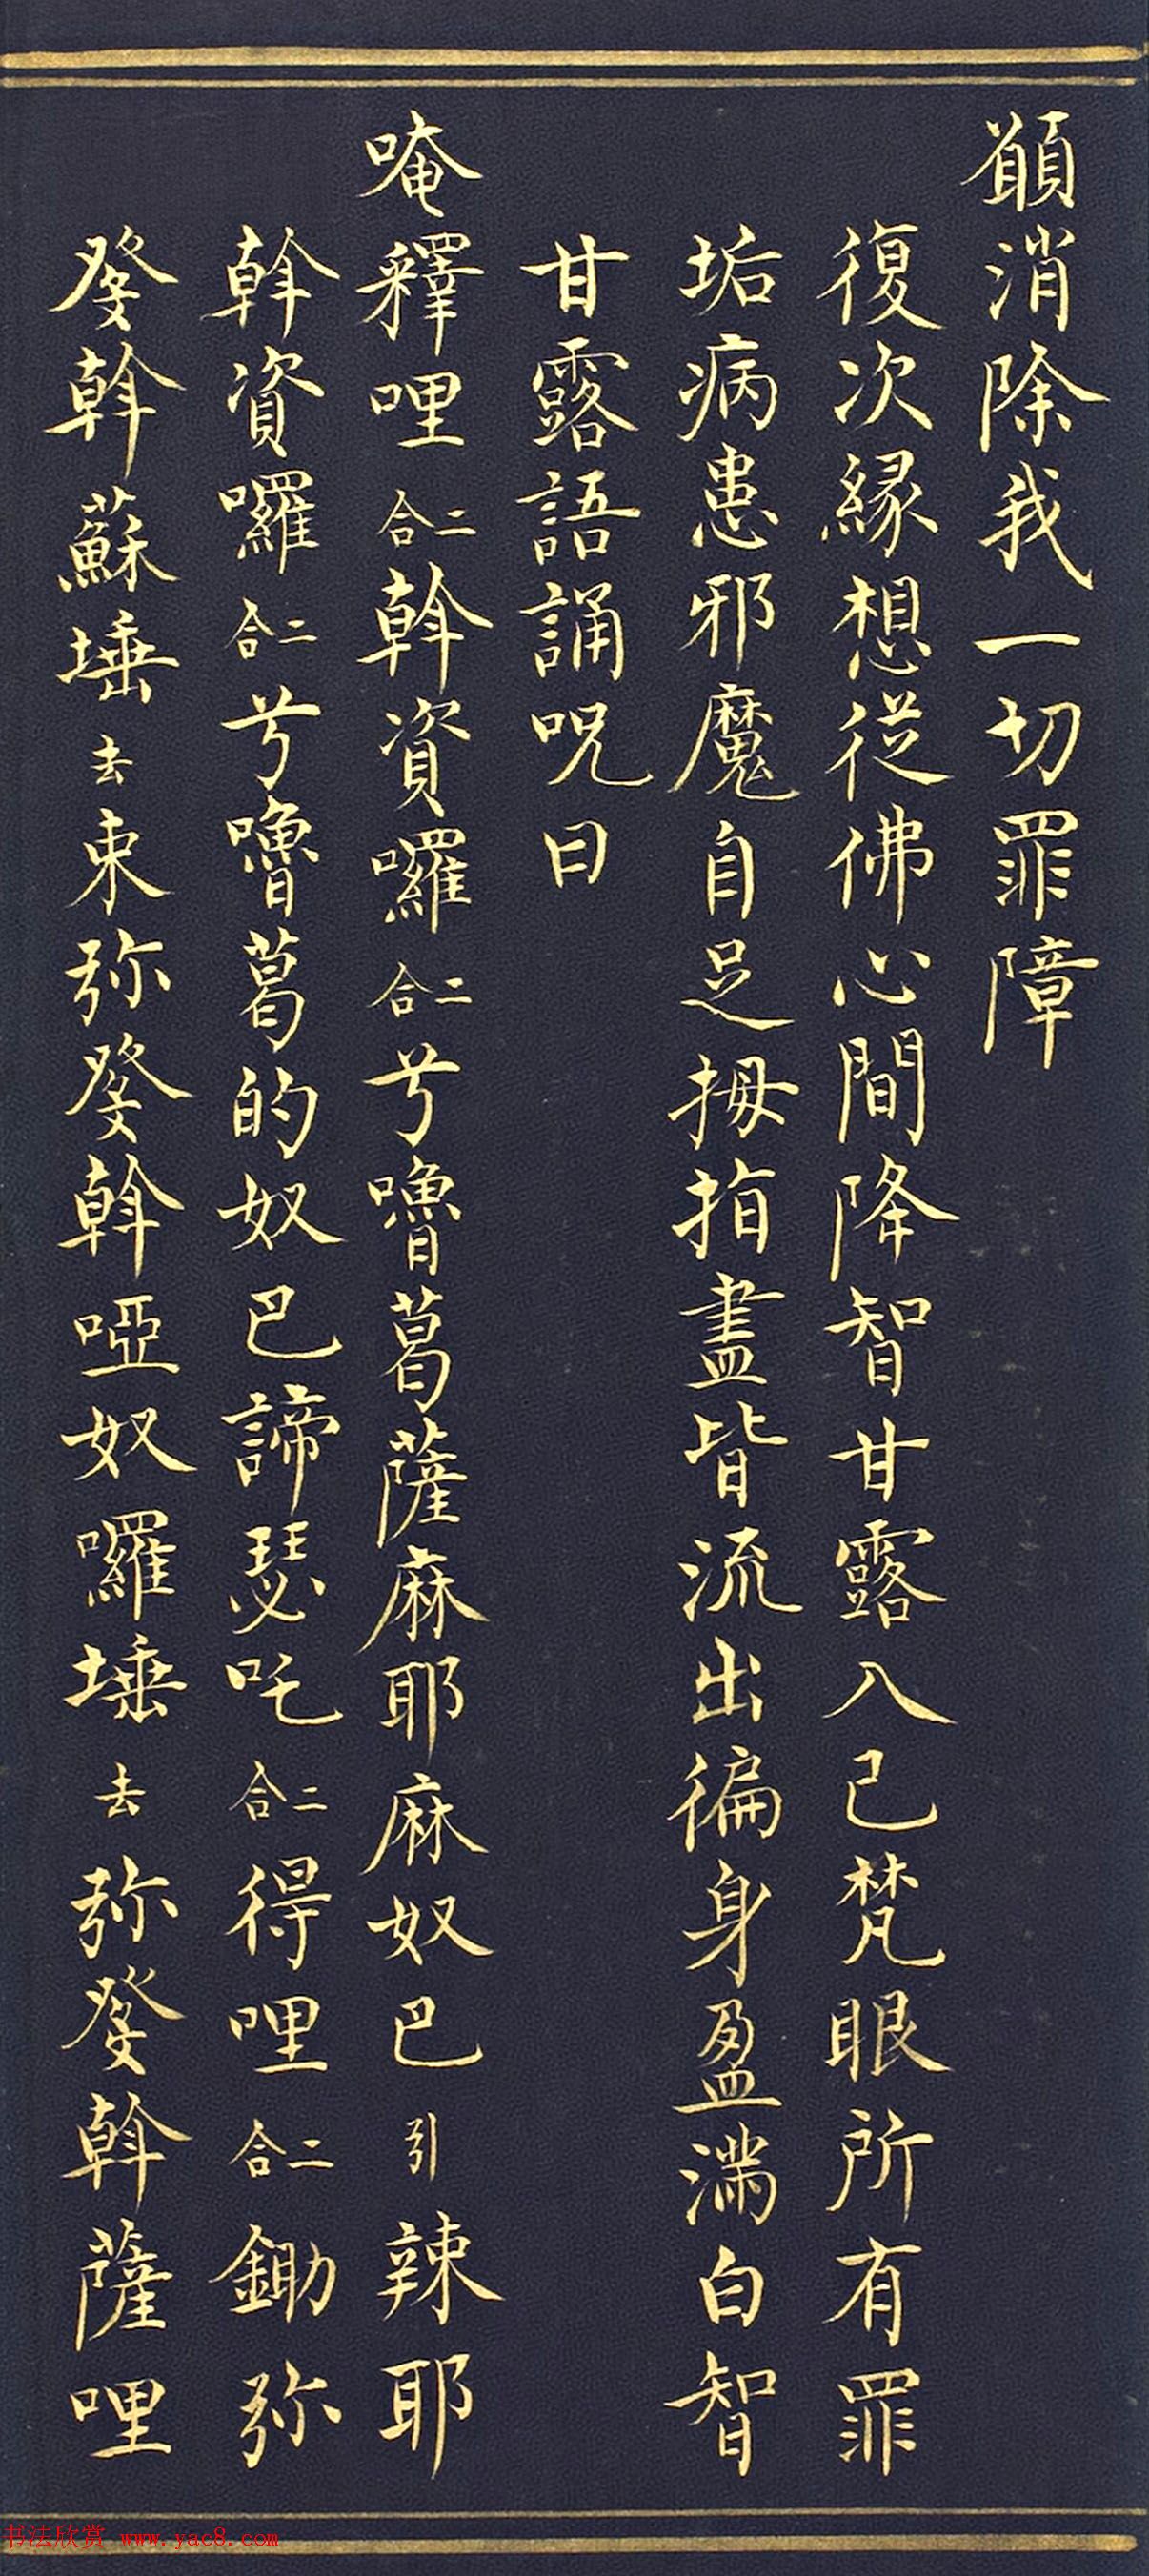 願消除我一切罪障
復次緣想從佛心間降智甘露入己梵眼所有罪
垢病患邪魔自足拇指盡皆流出徧身盈滿白智
甘露語誦呪曰
唵釋哩二合斡資囉二合兮嚕葛薩麻耶麻奴巴引辣耶
斡資囉二合兮嚕葛的奴巴諦瑟吒二合得哩二合鋤弥
癹斡蘇埵去束弥癹斡啞奴囉埵去弥癹斡薩哩
书法欣赏 www.yac8.com